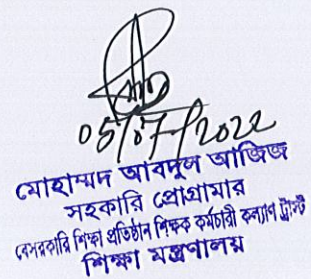 05/07/2022
মোহাম্মদ আবদুল আজিজ
সহকারি প্রোগ্রামার
বেসরকারি শিক্ষা প্রতিষ্ঠান শিক্ষক কর্মচারী কল্যাণ ট্রাস্ট
শিক্ষা মন্ত্রণালয়